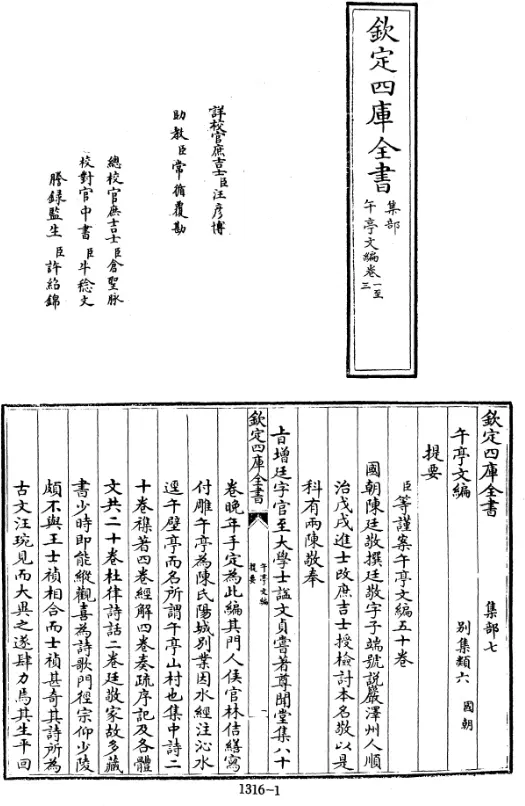 欽定四庫全書
集部
午亭文編卷一至三
詳校官庶吉士臣汪彦博
助教臣常循覆勘
總校官庶吉士臣倉聖脉
校對官中書臣牛稔文
謄錄監生臣許紹錦
欽定四庫全書
集部七
午亭文編
别集類六
國朝
提要
臣等謹案午亭文編五十卷
國朝陳廷敬撰廷敬字子端號說巖澤州人順
治戊戌進士改庶吉士授檢討本名敬以是
科有兩陳敬奉
㫖增廷字官至大學士謚文貞嘗著尊聞堂集八十
欽定四庫全書
午亭文編
提要
一
卷晚年手定為此編其門人侯官林佶繕寫
付雕午亭為陳氏陽城别業因水經注沁水
逕午壁亭而名所謂午亭山村也集中詩二
十卷襍著四卷經解四卷奏疏序記及各體
文共二十卷杜律詩話二卷廷敬家故多藏
書少時即能縱觀喜為詩歌門徑宗仰少陵
頗不與王士禎相合而士禎甚奇其詩所為
古文汪琬見而大異之遂肆力焉其生平回
1316-1